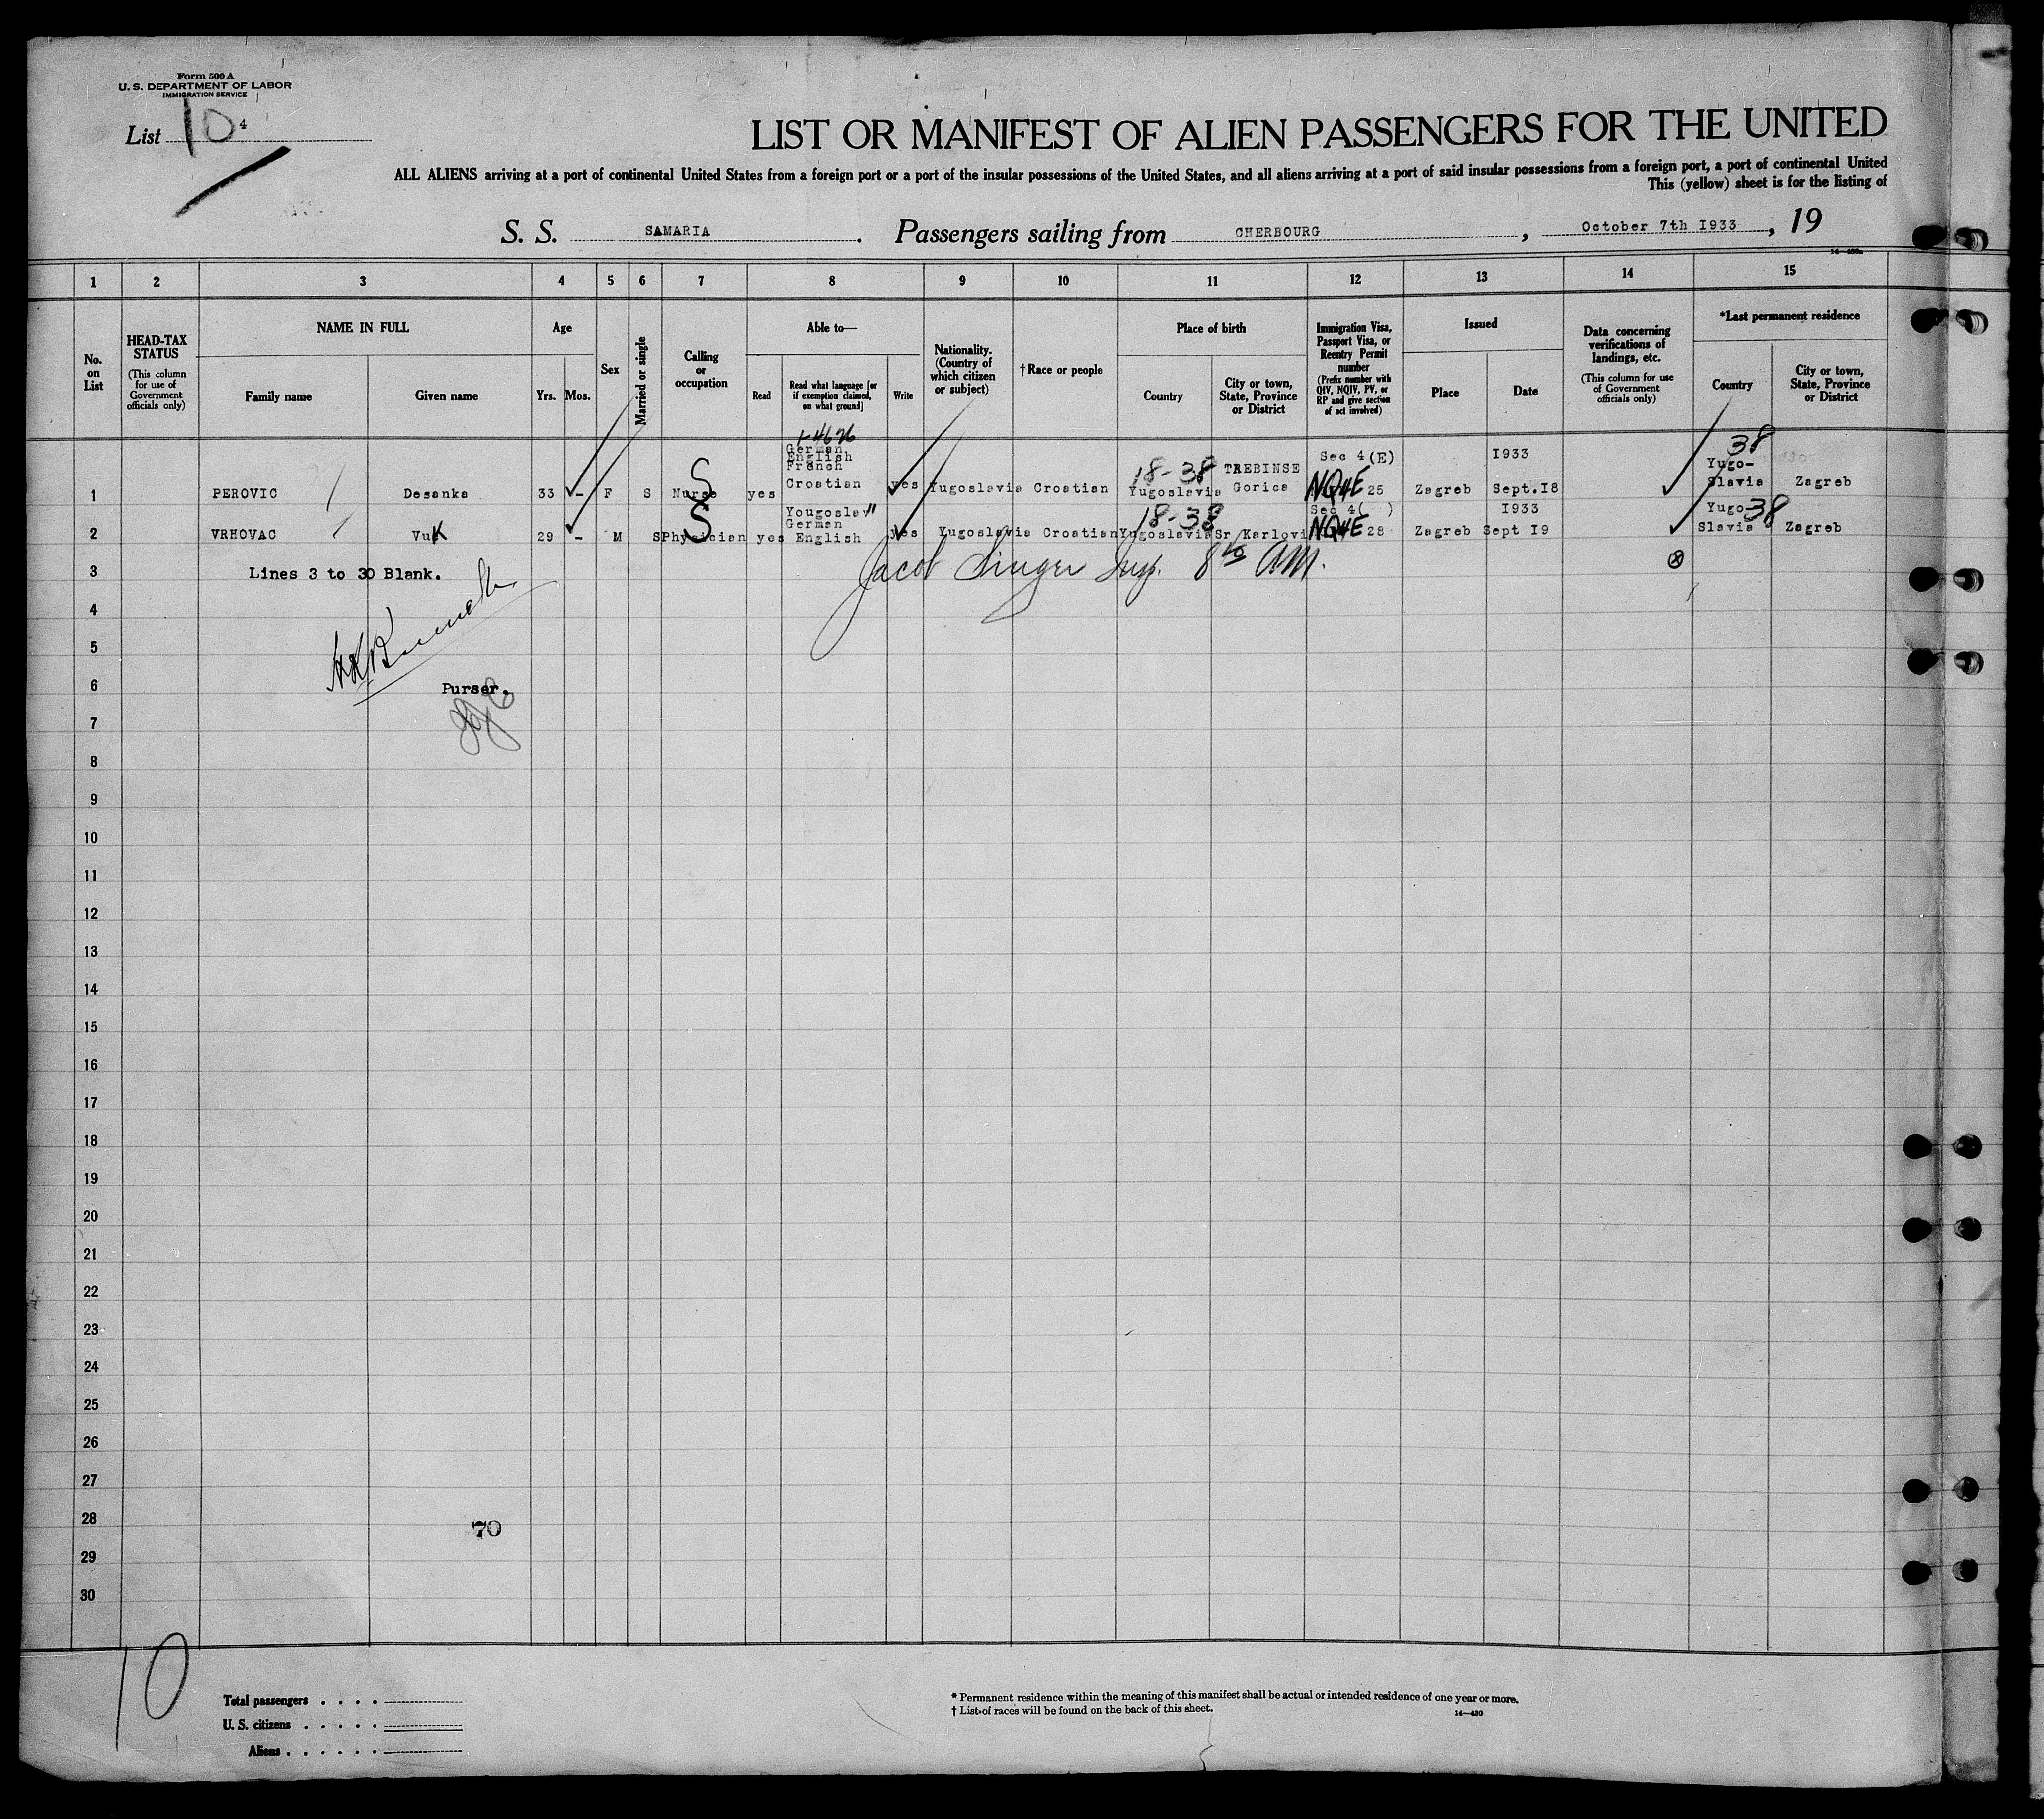 Form 500 A
U. S. DEPARTMENT OF LABOR
IMMIGRATION SERVICE
List 10 4
LIST OR MANIFEST OF ALIEN PASSENGERS FOR THE UNITED
ALL ALIENS arriving at a port of continental United States from a foreign port or a port of the insular possessions of the United States, and all aliens arriving at a port of said insular possessions from a foreign port, a port of continental United
This (yellow) sheet is for the listing of
S. S. SAMARIA. Passengers sailing from CHERBOURG, October 7th I933, 19
1 2 3 4 5 6 7 8 9 10 11 12 13 14 15
No. on List
HEAD-TAX STATUS
(This column for use of Government officials only)
NAME IN FULL
Family name
Given name
Age
Yrs. Mos.
Sex
Married or single
Calling or occupation
Able to—
Read
Read what language [or if exemption claimed, on what ground]
Write
Nationality. (Country of which citizen or subject)
†Race or people
Place of birth
Country
City or town, State, Province or District
Immigration Visa, Passport Visa, or Reentry Permit number
(Prefix number with QIV, NQIV, PV, or RP and give section of act involved)
Issued
Place
Date
Data concerning verifications of landings, etc.
(This column for use of Government officials only)
*Last permanent residence
Country
City or town, State, Province or District
German
English
French Sec 4(E) I933 38
Croatian 18-38 TREBINSE Yugo-
1 PEROVIC Desanka 33 - F S Nurse yes yes Yugoslavia Croatian Yugoslavia Gorica NQ4E 25 Zagreb Sept.I8 Slavia Zagreb
Yougoslav"
German 18-38 Sec 4( ) I933 Yugo- 38
2 VRHOVAC Vuk 29 - M S Physician yes English yes Yugoslavia Croatian Yugoslavia Sr Karlovi NQ4E 28 Zagreb Sept I9 Slavia Zagreb
3 Lines 3 to 30 Blank. Jacob Singer Insp. AM.
4
5
6 Purser.
7
8
9
10
11
12
13
14
15
16
17
18
19
20
21
22
23
24
25
26
27
28 70
29
30
10
Total passengers . . . .
U. S. citizens . . . . .
Aliens . . . . . .
* Permanent residence within the meaning of this manifest shall be actual or intended residence of one year or more.
† List of races will be found on the back of this sheet.
14—430